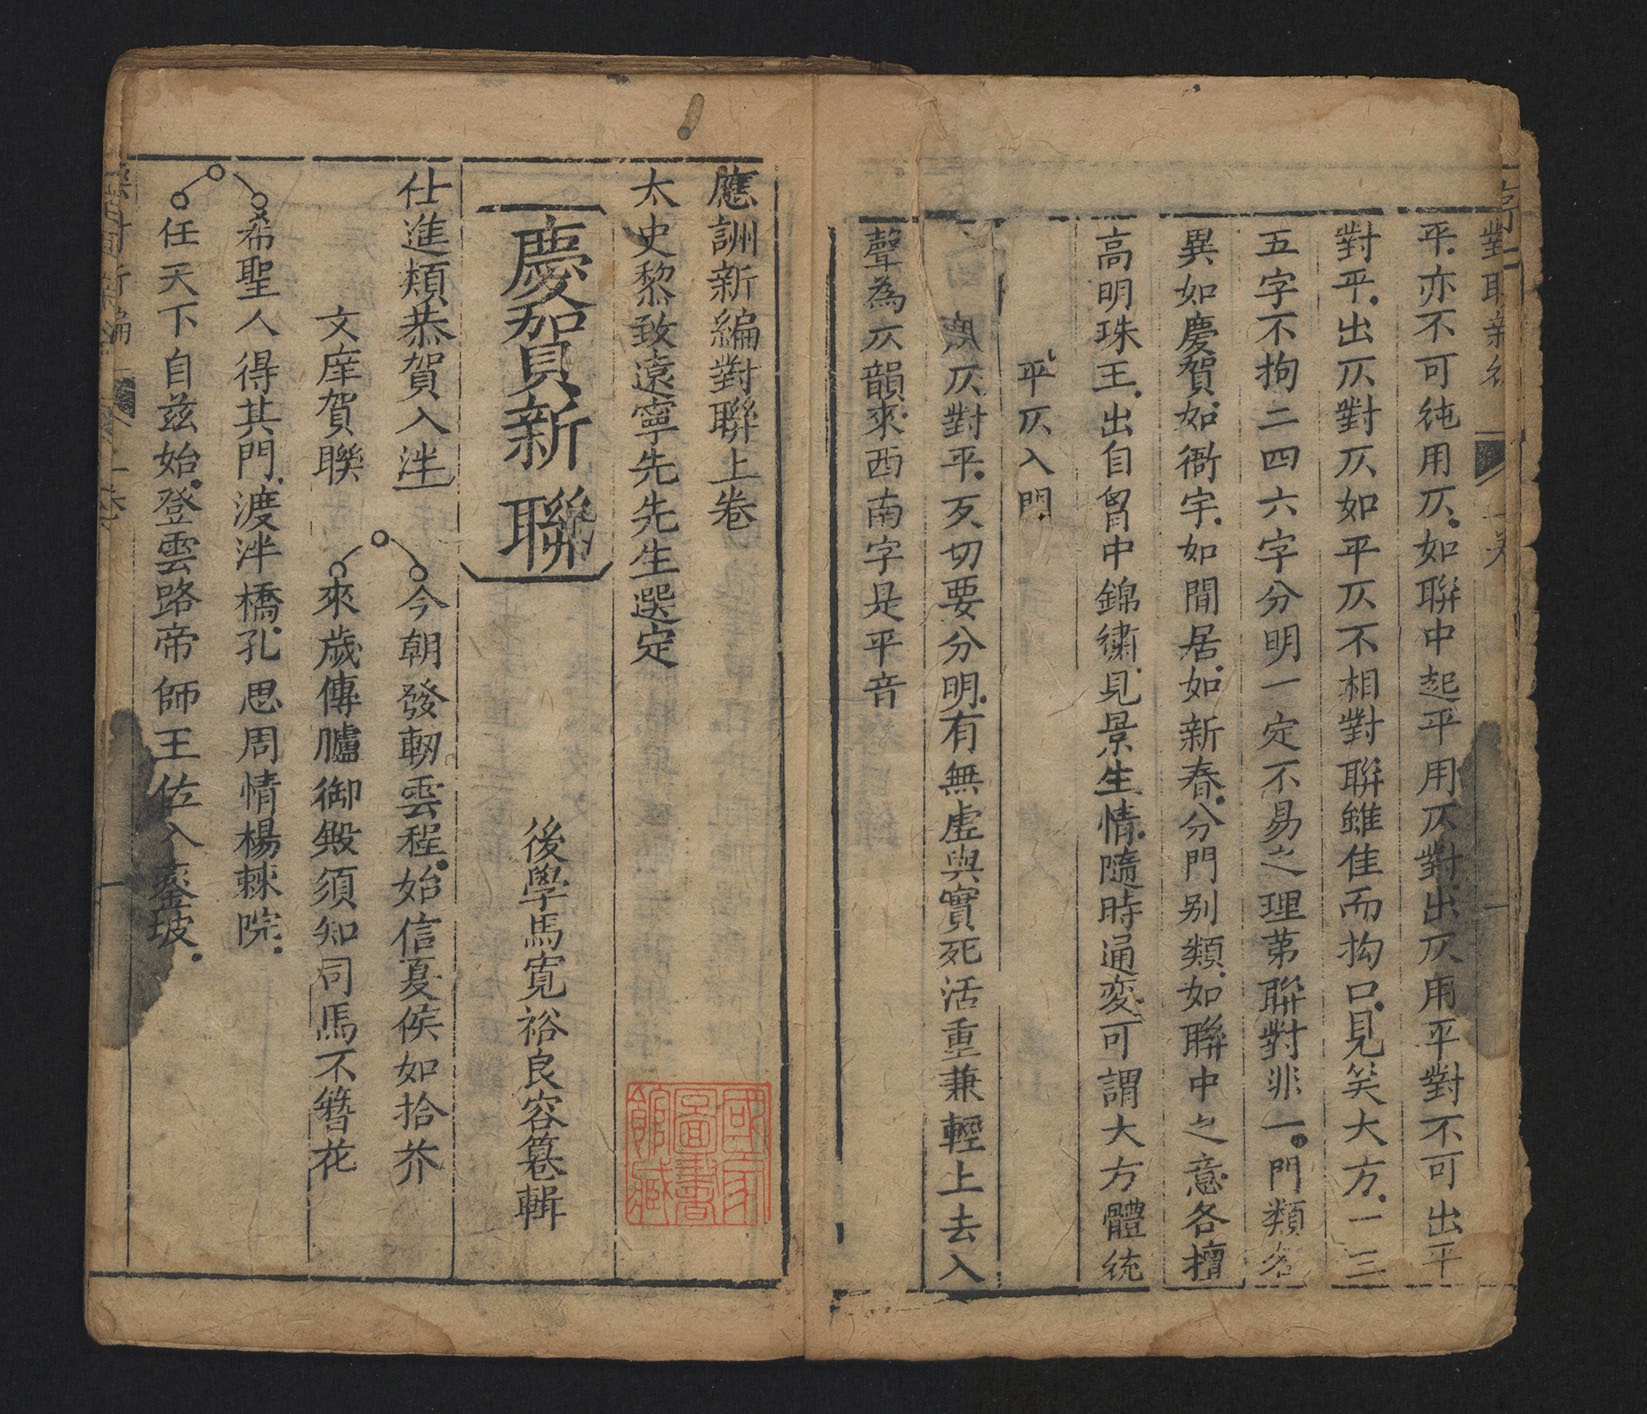 平亦不可純用仄如聯中起平用仄對出仄用平對不可出平
對平出仄對仄如平仄不相對聯雖佳而拘口見笑大方一三
五字不拘二四六字分明一定不易之理第聯對非一門類各
異如慶賀如衙宇如閒居如新春分門别類如聯中之意各擅
高明珠王出自胷中錦繡見景生情隨時通変可謂大方體統
平仄入門
仄對平叐切要分明有無虛與實死活重兼輕上去入
聲為仄韻來西南字是平音
應詶新編對聯上卷
太史黎致遠寧先先生選定
慶賀新聯
後學馬寬裕良容纂輯
仕進類恭賀入泮
今朝發軔雲程始信夏侯如拾芥
文庠賀聯
來歲傳臚御殿須知司馬不簪花
希聖人得其門渡泮橋孔思周情楊棘院
任天下自茲始登雲路帝師王佐入鑾坡
國家圖書館藏